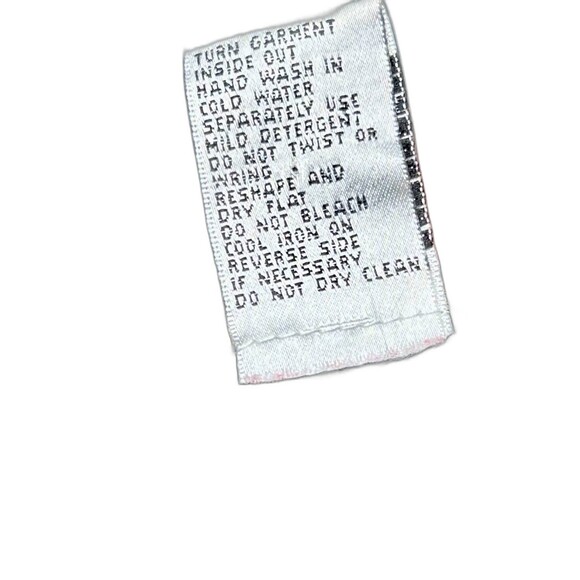 TURN GARMENT
INSIDE OUT
HAND WASH IN
COLD WATER
SEPARATELY USE
MILD DETERGENT
DO NOT TWIST OR
WRING
RESHAPE AND
DRY FLAT
DO NOT BLEACH
COOL IRON ON
REVERSE SIDE
IF NECESSARY
DO NOT DRY CLEAN